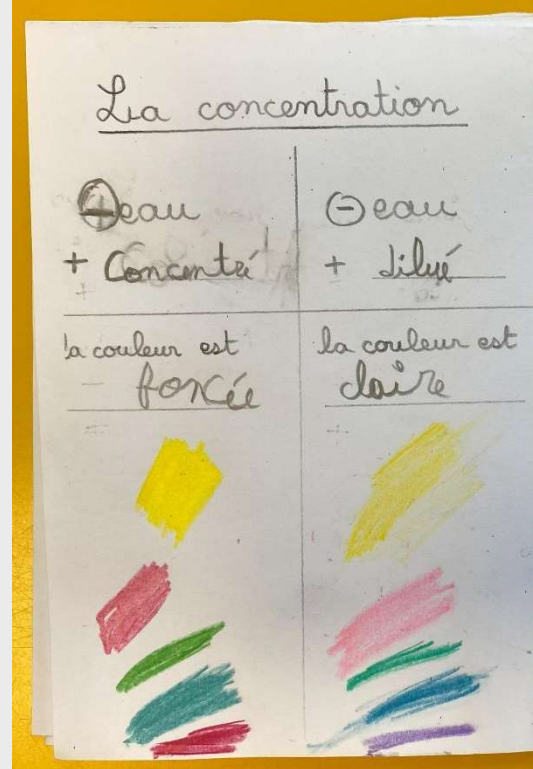 La concentration
⊕eau
+ Concentré
⊖eau
+ dilué
la couleur est
foncée
la couleur est
claire